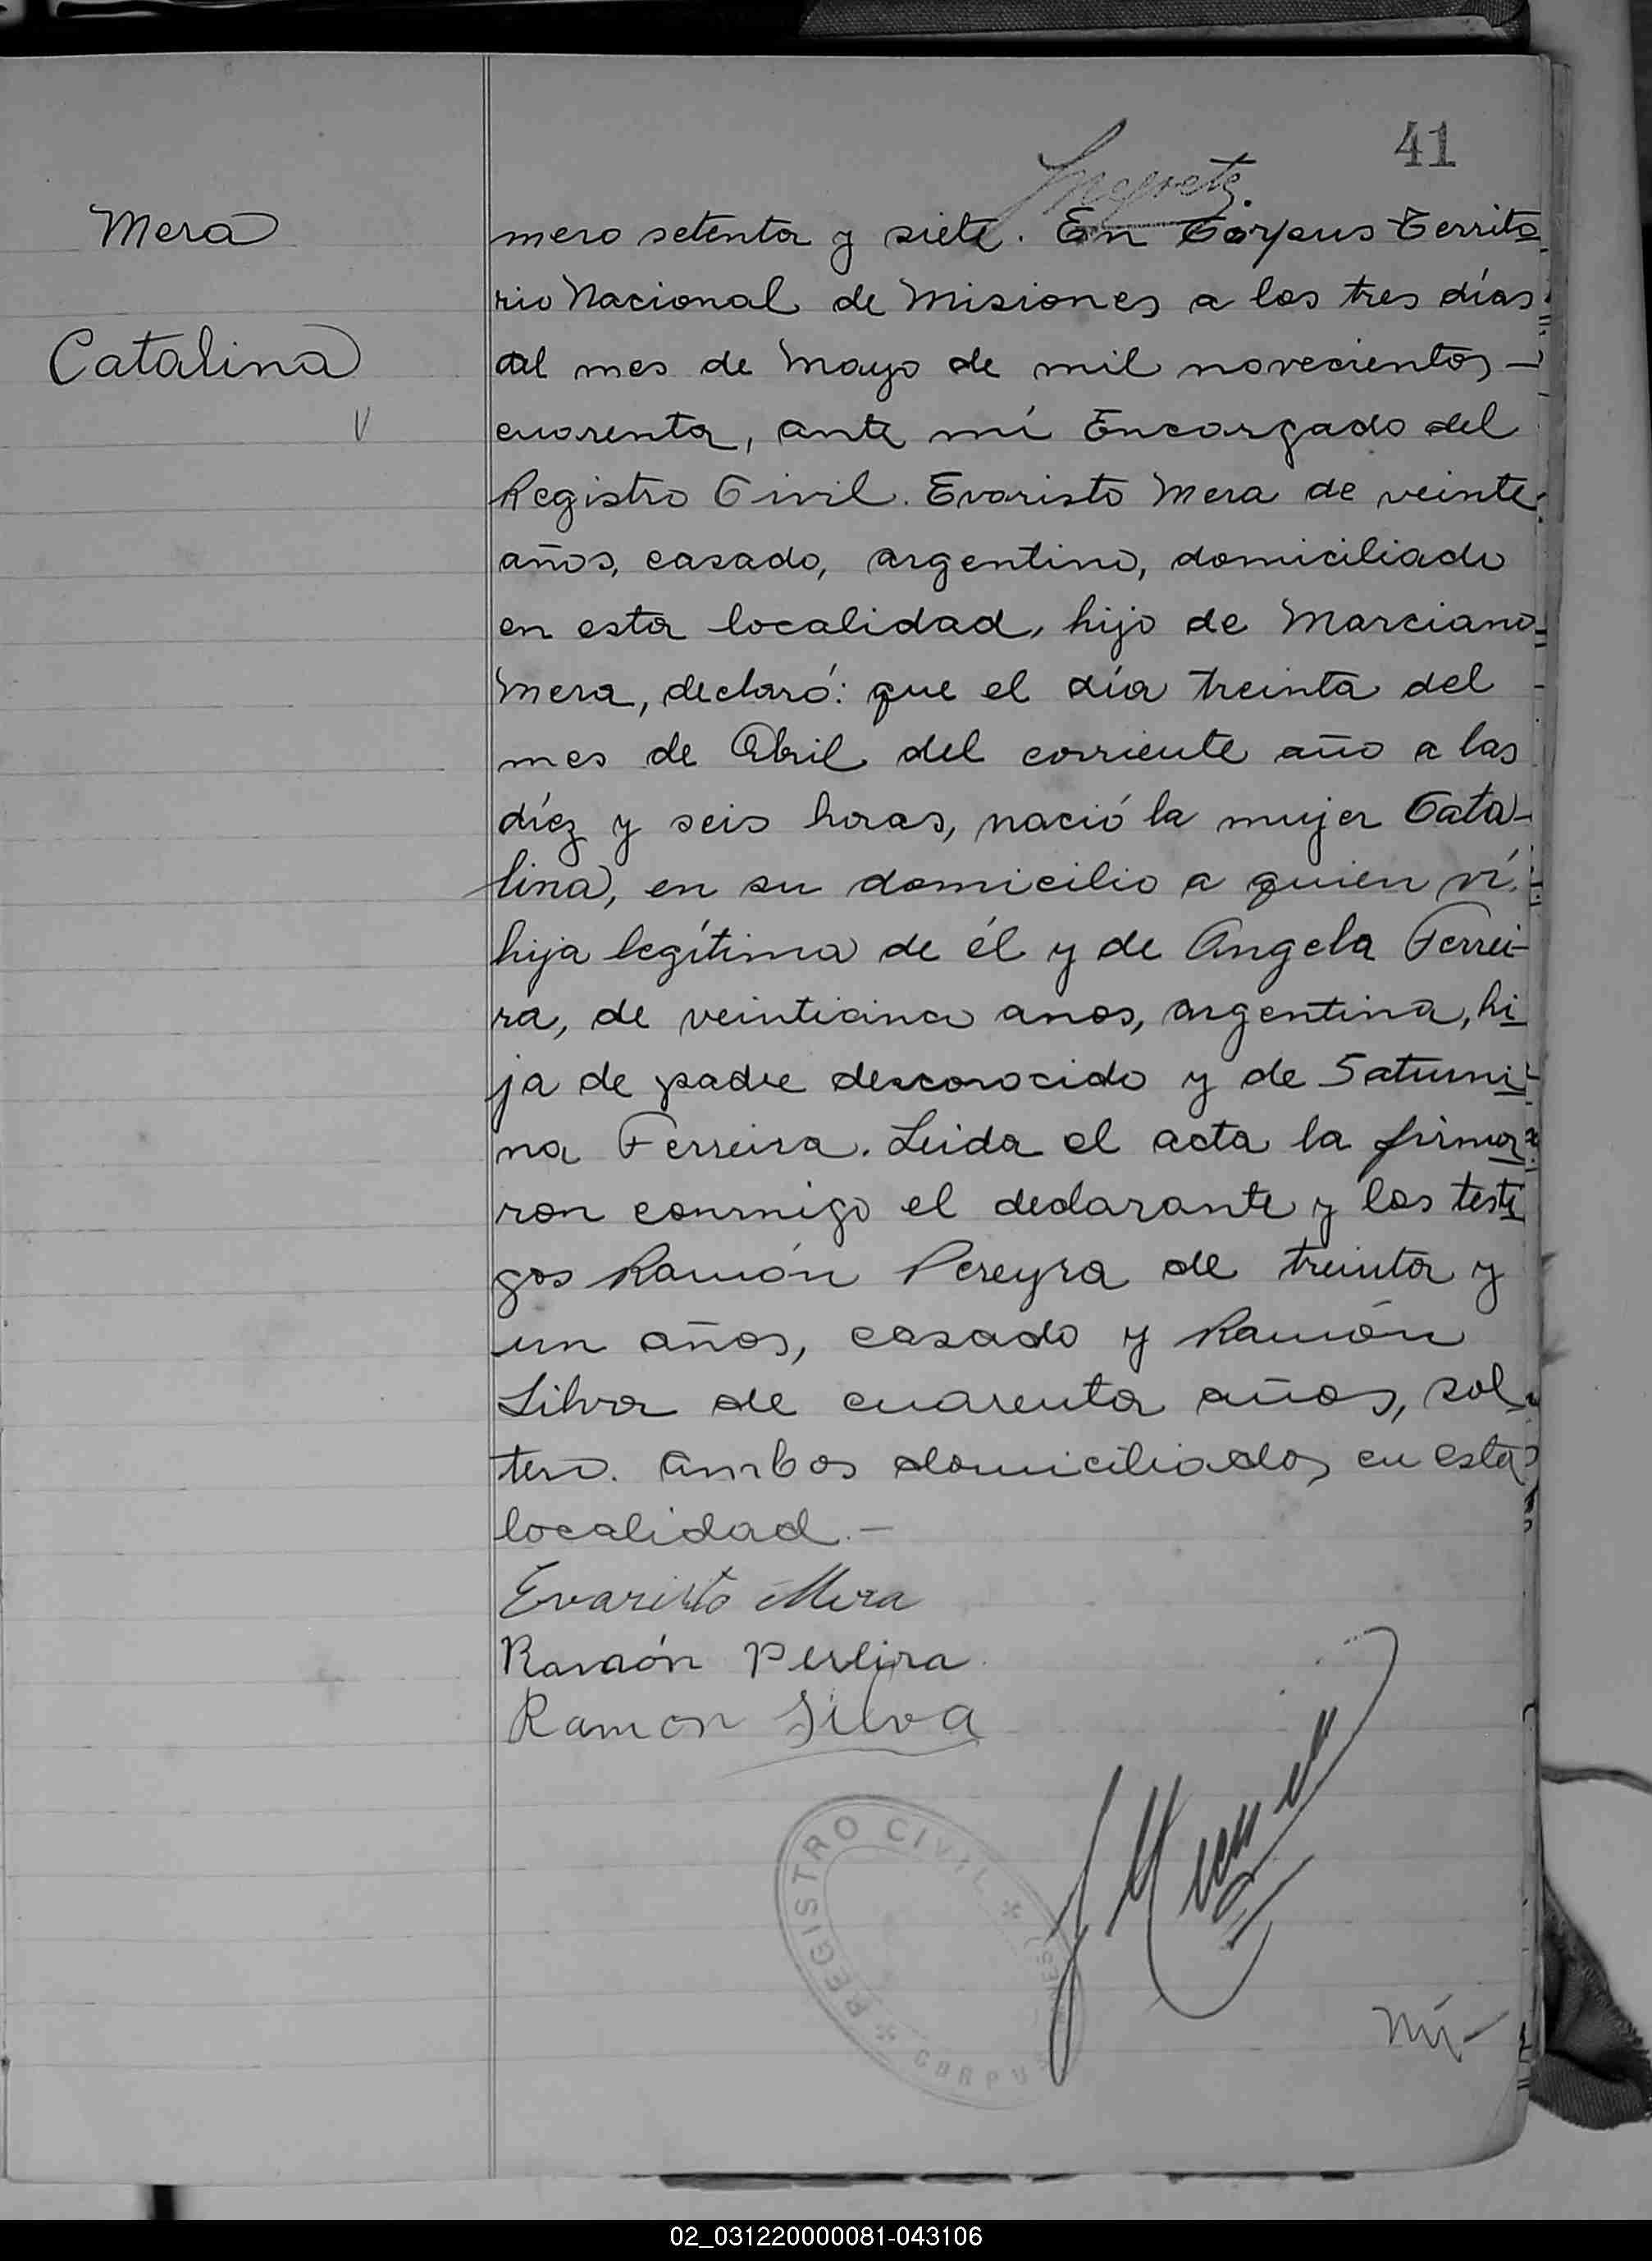 41
Mera
Catalina
mero setenta y siete. En Corpus Territo
rio Nacional de Misiones a los tres días
del mes de Mayo de mil novecientos —
cuarenta, ante mí Encargado del
Registro Civil. Evaristo Mera de veinte
años, casado, argentino, domiciliado
en esta localidad, hijo de Marciano
Mera, declaró: que el día treinta del
mes de Abril del corriente año a las
diéz y seis horas, nació la mujer Cata-
lina, en su domicilio a quien ví.
hija legítima de él y de Angela Ferrei-
ra, de anos, argentina, hi
ja de padre desconocido y de Saturni
na Ferreira. Leida el acta la firma
ron conmigo el declarante y los testi
gos Ramón Pereyra de treinta y
un años, casado y Ramón
Silva de cuarenta años, sol
tero. Ambos domiciliados en esta
localidad.—
Evaristo Mera
Ramón Pereira
Ramon Silva
REGISTRO CIVIL
CORPUS
Nú-
02_031220000081-043106